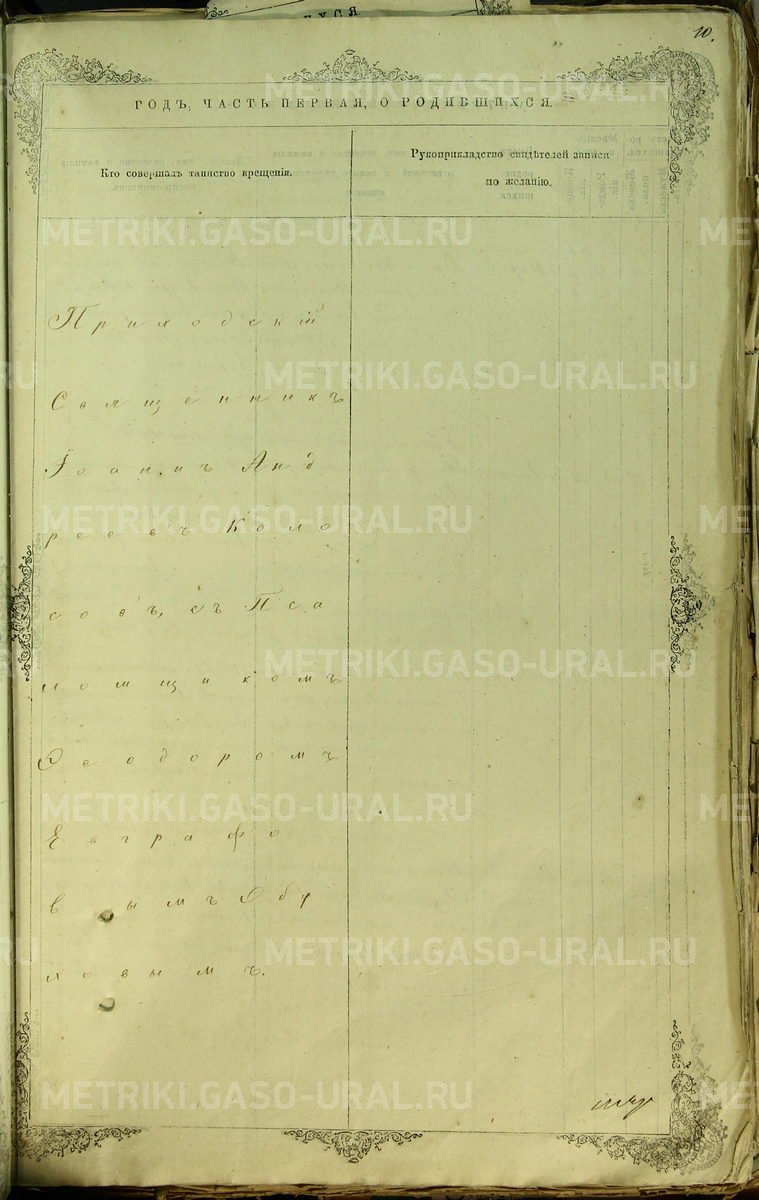 10.
ГОДЪ, ЧАСТЬ ПЕРВАЯ, О РОДИВШИХСЯ.
Кто совершалъ таинство крещенія.
Рукоприкладство свидѣтелей записи
по желанію.
Приходскій
Священникъ
Іоаннъ Анд
реевъ Коло
совъ, съ Пса
ломщикомъ
Ѳеодоромъ
Евграфо
вымъ Обу
ховымъ.
METRIKI.GASO-URAL.RU